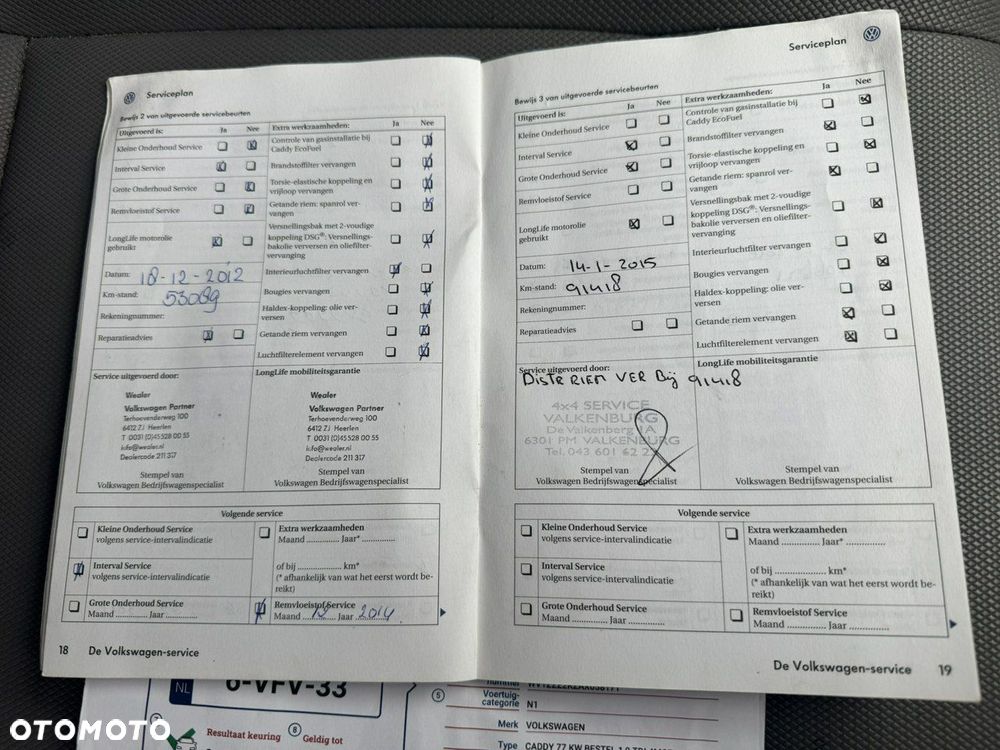 Serviceplan
Bewijs 2 van uitgevoerde servicebeurten
Uitgevoerd is: Ja Nee
Kleine Onderhoud Service
Interval Service
Grote Onderhoud Service
Remvloeistof Service
LongLife motorolie
gebruikt
Datum: 18-12-2012
Km-stand: 53089
Rekeningnummer:
Reparatieadvies
Extra werkzaamheden: Ja Nee
Controle van gasinstallatie bij
Caddy EcoFuel
Brandstoffilter vervangen
Torsie-elastische koppeling en
vrijloop vervangen
Getande riem: spanrol ver-
vangen
Versnellingsbak met 2-voudige
koppeling DSG®: Versnellings-
bakolie verversen en oliefilter-
vervanging
Interieurluchtfilter vervangen
Bougies vervangen
Haldex-koppeling: olie ver-
versen
Getande riem vervangen
Luchtfilterelement vervangen
Service uitgevoerd door:
Wealer
Volkswagen Partner
Terhoevenderweg 100
6412 ZJ Heerlen
T 0031 (0)45 528 00 55
info@wealer.nl
Dealercode 211 317
Stempel van
Volkswagen Bedrijfswagenspecialist
LongLife mobiliteitsgarantie
Wealer
Volkswagen Partner
Terhoevenderweg 100
6412 ZJ Heerlen
T 0031 (0)45 528 00 55
info@wealer.nl
Dealercode 211 317
Stempel van
Volkswagen Bedrijfswagenspecialist
Volgende service
Kleine Onderhoud Service
volgens service-intervalindicatie
Interval Service
volgens service-intervalindicatie
Grote Onderhoud Service
Maand ............ Jaar ............
Extra werkzaamheden
Maand ............ Jaar* ............
of bij ................ km*
(* afhankelijk van wat het eerst wordt be-
reikt)
Remvloeistof Service
Maand 12 Jaar 2014
18 De Volkswagen-service
Serviceplan
Bewijs 3 van uitgevoerde servicebeurten
Uitgevoerd is: Ja Nee
Kleine Onderhoud Service
Interval Service
Grote Onderhoud Service
Remvloeistof Service
LongLife motorolie
gebruikt
Datum: 14-1-2015
Km-stand: 91418
Rekeningnummer:
Reparatieadvies
Extra werkzaamheden: Ja Nee
Controle van gasinstallatie bij
Caddy EcoFuel
Brandstoffilter vervangen
Torsie-elastische koppeling en
vrijloop vervangen
Getande riem: spanrol ver-
vangen
Versnellingsbak met 2-voudige
koppeling DSG®: Versnellings-
bakolie verversen en oliefilter-
vervanging
Interieurluchtfilter vervangen
Bougies vervangen
Haldex-koppeling: olie ver-
versen
Getande riem vervangen
Luchtfilterelement vervangen
Service uitgevoerd door:
DISTR RIEM VER Bij 91418
4x4 SERVICE
VALKENBURG
De Valkenberg 1A
6301 PM VALKENBURG
Tel. 043 601 62 22
Stempel van
Volkswagen Bedrijfswagenspecialist
LongLife mobiliteitsgarantie
Stempel van
Volkswagen Bedrijfswagenspecialist
Volgende service
Kleine Onderhoud Service
volgens service-intervalindicatie
Interval Service
volgens service-intervalindicatie
Grote Onderhoud Service
Maand ............ Jaar ............
Extra werkzaamheden
Maand ............ Jaar* ............
of bij ................ km*
(* afhankelijk van wat het eerst wordt be-
reikt)
Remvloeistof Service
Maand ............ Jaar ............
De Volkswagen-service 19
NL 6-VFV-33
Resultaat keuring
8 Geldig tot
5 Voertuig-
categorie N1
Merk VOLKSWAGEN
Type CADDY 77 KW BESTEL
OTOMOTO